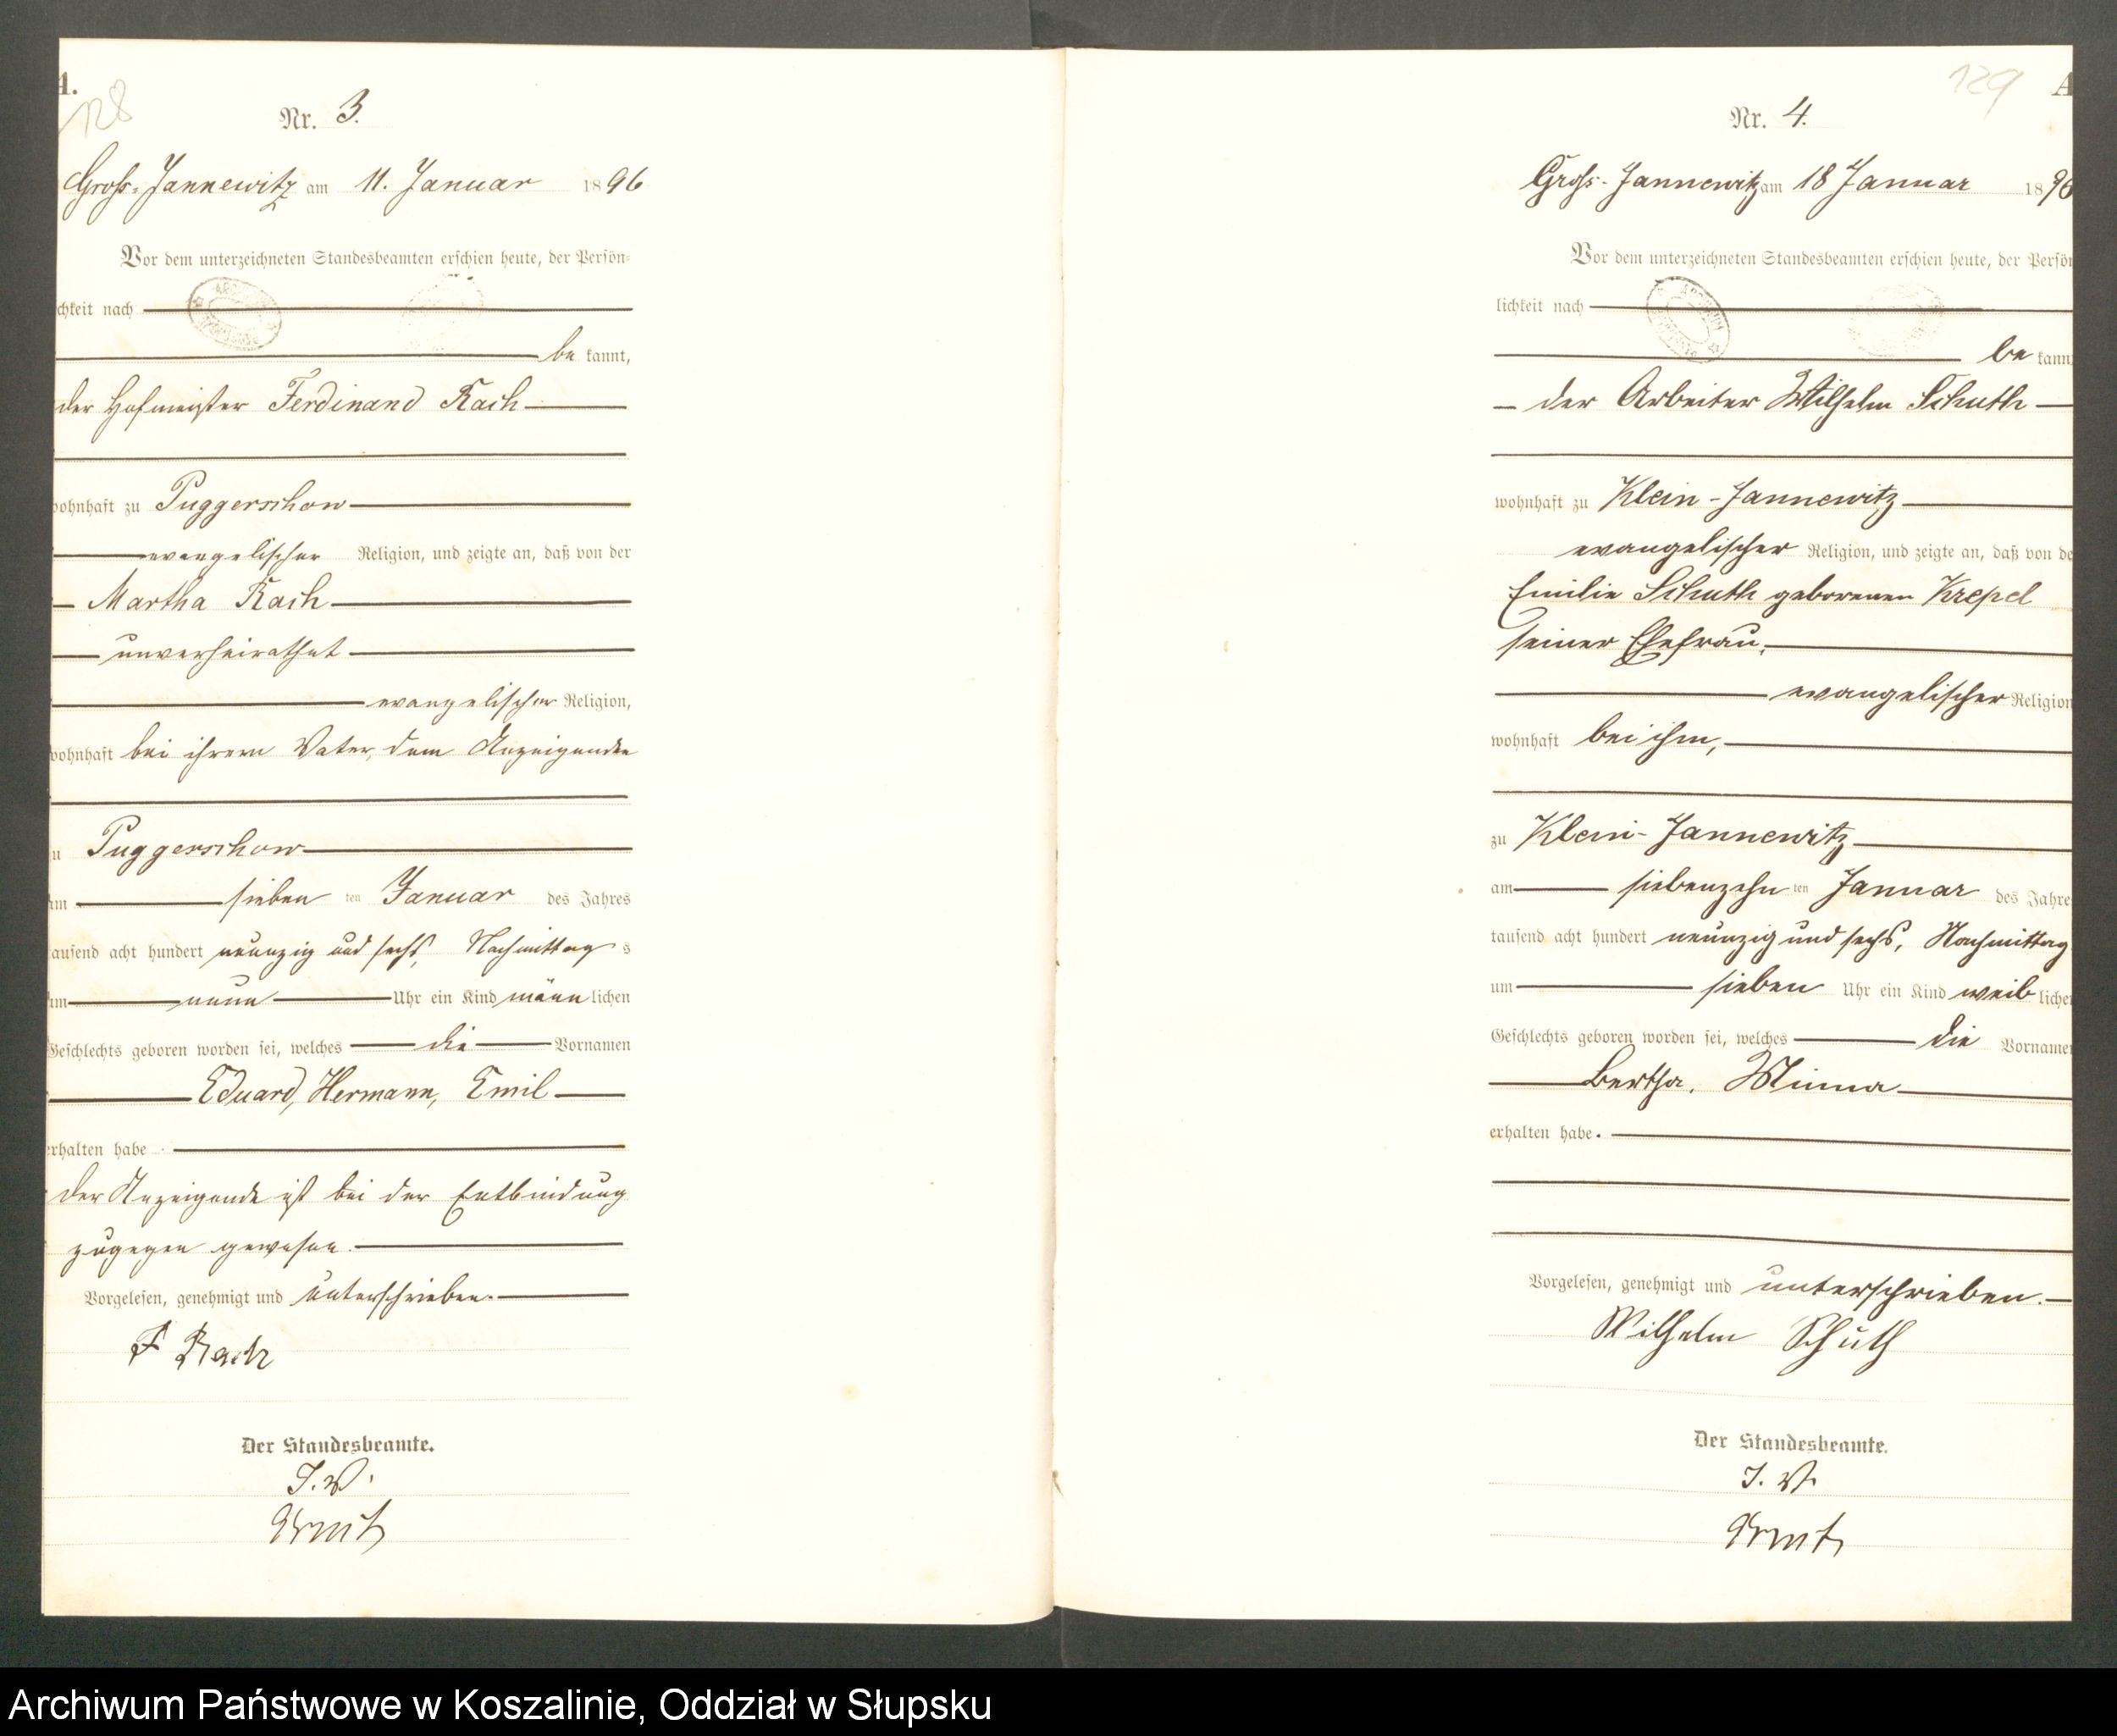 A.
128
Nr. 3.
Gross-Jannewitz am 11. Januar 1896
Vor dem unterzeichneten Standesbeamten erschien heute, der Persön-
chkeit nach
be kannt,
der Hofmeister Ferdinand Rach
wohnhaft zu Puggerschow
evangelischer Religion, und zeigte an, daß von der
Martha Rach
unverheirathet
evangelischer Religion,
wohnhaft bei ihrem Vater, dem Anzeigenden
zu Puggerschow
am sieben ten Januar des Jahres
tausend acht hundert neunzig und sechs, Nachmittag s
um neun Uhr ein Kind männ lichen
Geschlechts geboren worden sei, welches die Vornamen
Eduard, Hermann, Emil
erhalten habe
Der Anzeigende ist bei der Entbindung
zugegen gewesen.
Vorgelesen, genehmigt und unterschrieben.
F Rach
Der Standesbeamte.
I. V.
129
A
Nr. 4.
Gross-Jannewitz am 18 Januar 1896
Vor dem unterzeichneten Standesbeamten erschien heute, der Persön
lichkeit nach
be kannt
der Arbeiter Wilhelm Schuth
wohnhaft zu Klein-Jannewitz
evangelischer Religion, und zeigte an, daß von de
Emilie Schuth geborenen Krepel
seiner Ehefrau,
evangelischer Religion
wohnhaft bei ihm,
zu Klein-Jannewitz
am siebenzehn ten Januar des Jahre
tausend acht hundert neunzig und sechs, Nachmittag
um sieben Uhr ein Kind weib liche
Geschlechts geboren worden sei, welches die Vorname
Bertha, Minna
erhalten habe.
Vorgelesen, genehmigt und unterschrieben.
Wilhelm Schuth
Der Standesbeamte.
I. V.
Archiwum Państwowe w Koszalinie, Oddział w Słupsku